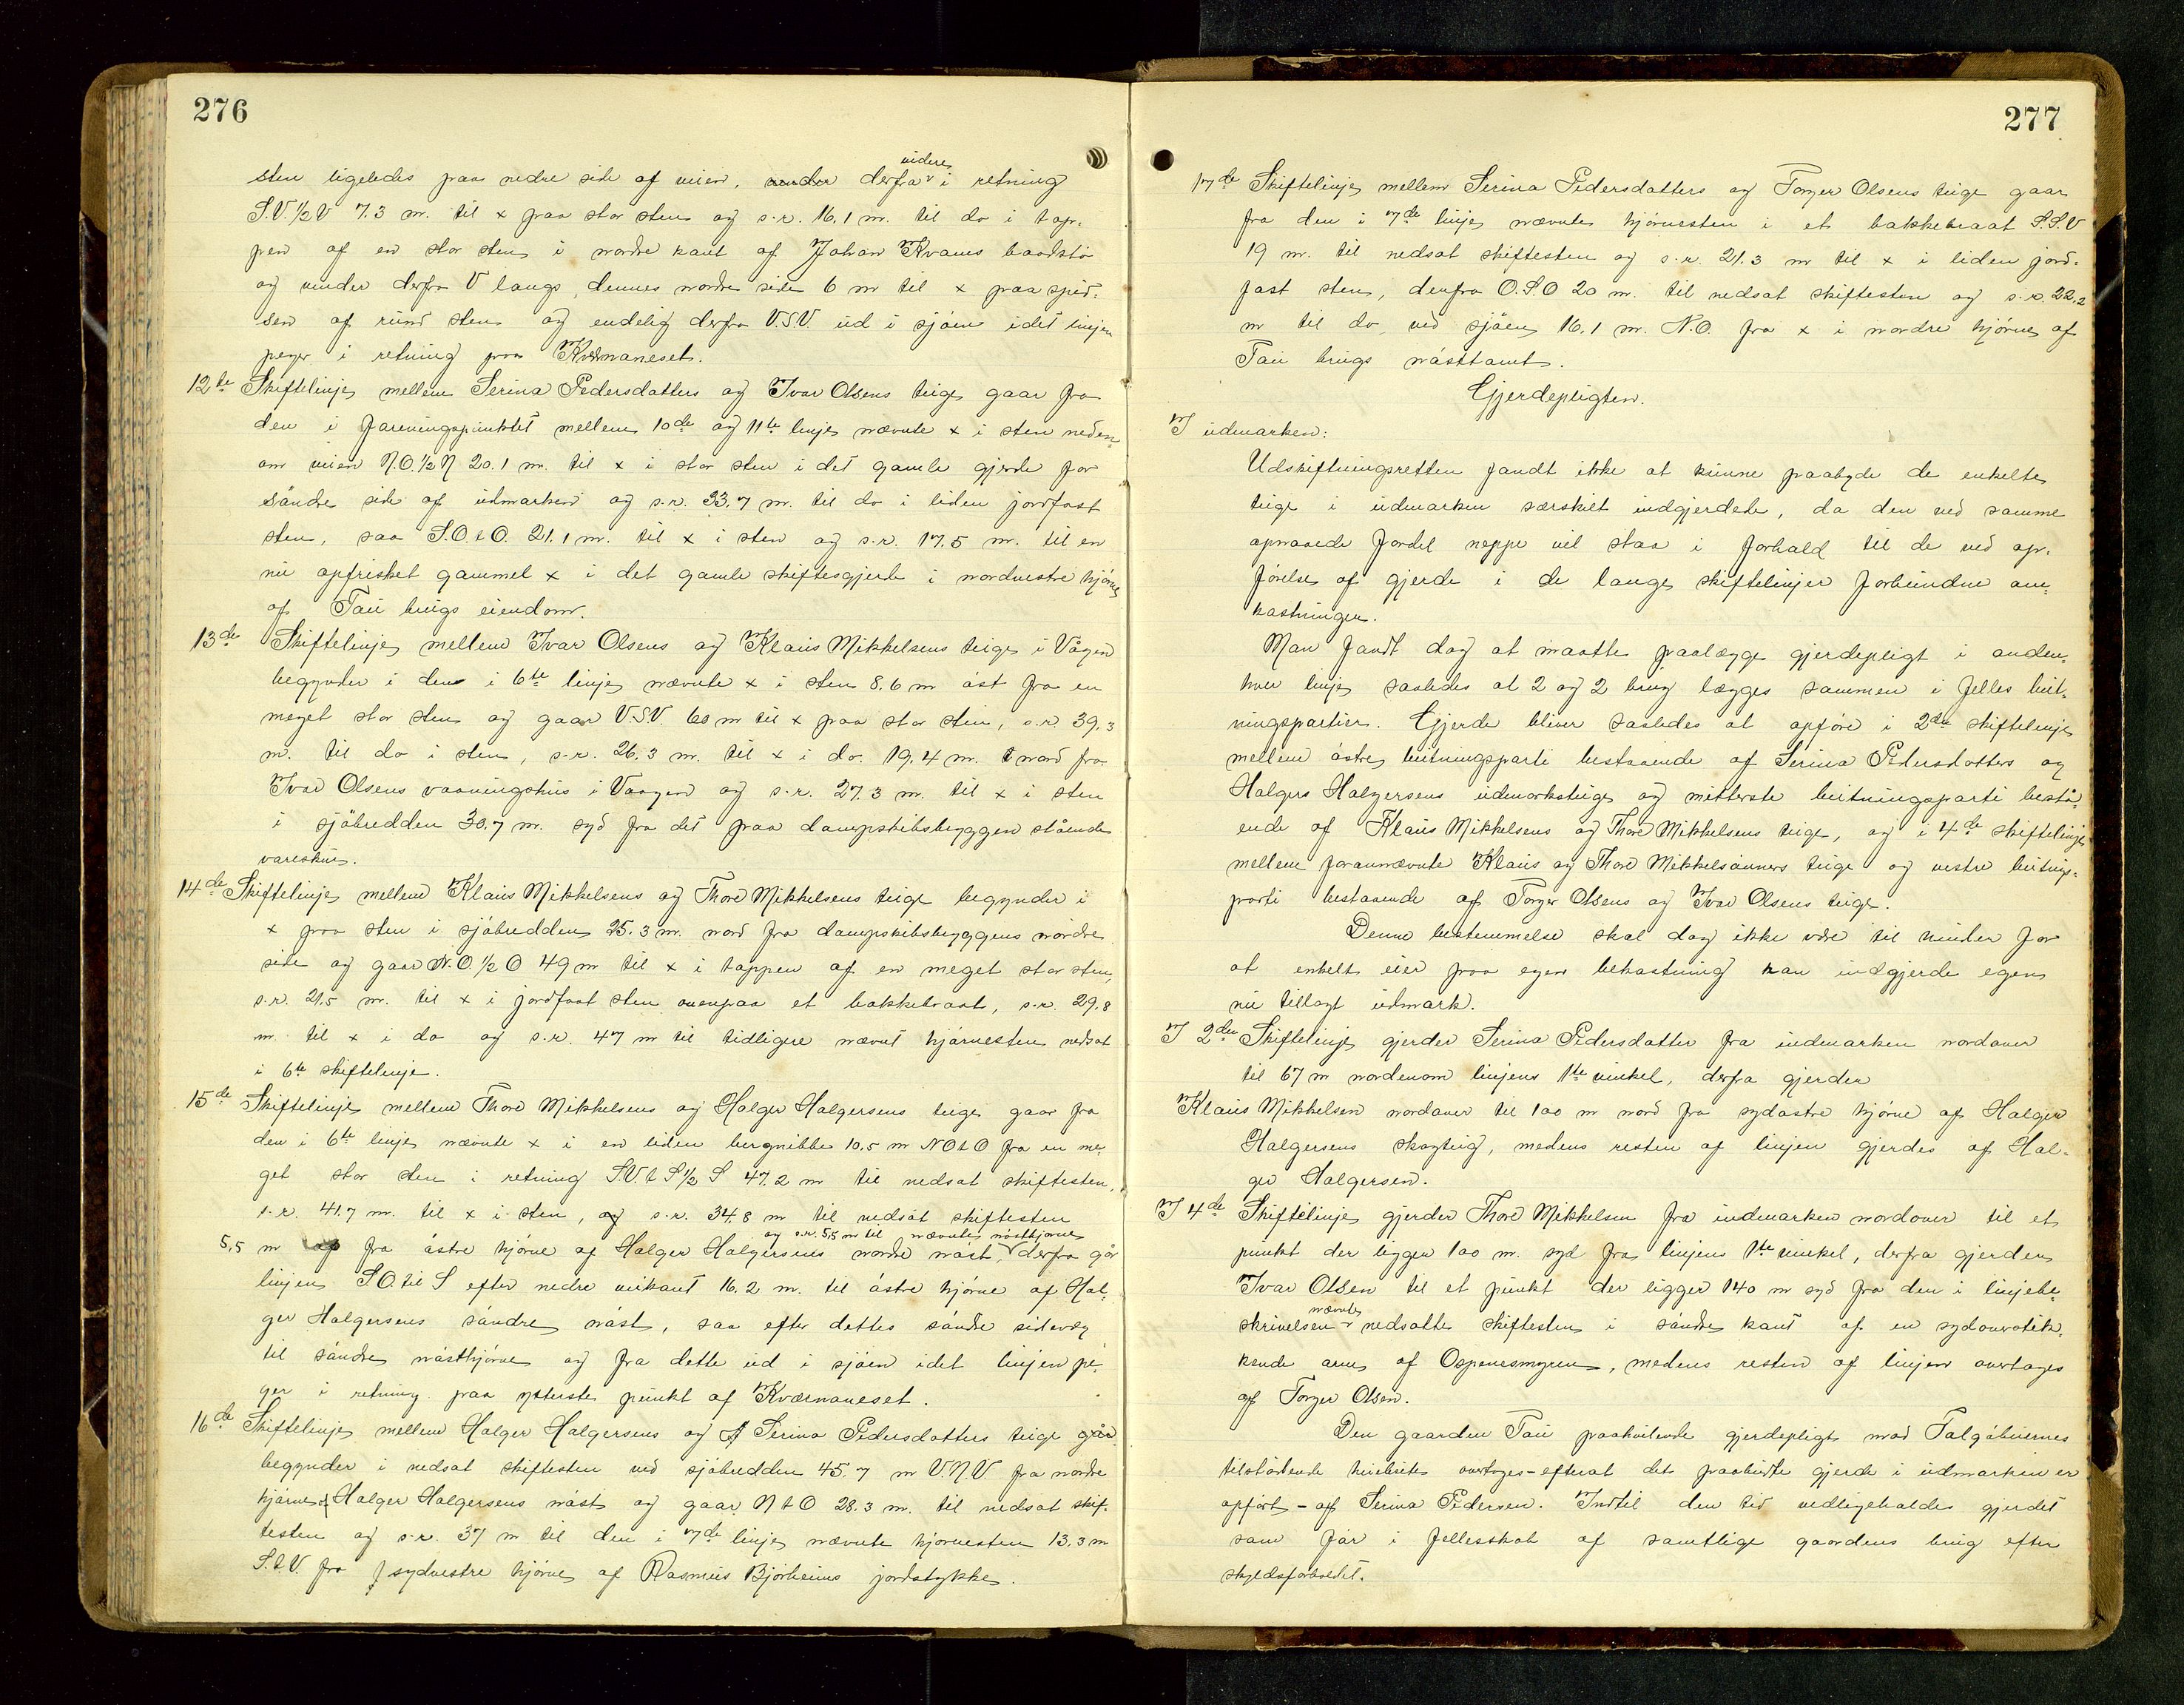 276
sten ligeledes paa nedre side af veien, derfra videre i retning
S.V.½V 7.3 m. til x paa stor sten og s.r. 16.1 m. til do i top-
pen af en stor sten i nordre kant af Johan Kvams baadstø
og vinder derfra V langs dennes nordre side 6 m til x paa spid-
sen af rund sten og endelig derfra V.S.V. ud i sjøen idet linjen
peger i retning paa Kværnaneset.
12te Skiftelinje mellem Serina Pedersdatters og Ivar Olsens teige gaar fra
den i foreningspunktet mellem 10de og 11te linje nævnte x i sten neden-
om veien N.O.½N 20.1 m. til x i stor sten i det gamle gjerde for
søndre side af udmarken og s.r. 33.7 m. til do i liden jordfast
sten, saa S.O.t.O. 21.1 m. til x i sten og s.r. 17.5 m. til en
nu opfrisket gammel x i det gamle skiftesgjerde i nordvestre hjørne
af Tau brugs eiendom.
13de Skiftelinje mellem Ivar Olsens og Klaus Mikkelsens teige i Vågen
begynder i den i 6te linje nævnte x i sten 8.6 m øst fra en
meget stor sten og gaar V.S.V. 60 m til x paa stor sten, s.r. 39.3
m. til do i sten, s.r. 26.3 m. til x i do. 19.4 m. nord fra
Ivar Olsens vaaningshus i Vaagen og s.r. 27.3 m. til x i sten
i sjøbredden 30.7 m. syd fra det paa dampskibsbryggen stående
vareskur.
14de Skiftelinje mellem Klaus Mikkelsens og Thore Mikkelsens teige begynder i
x paa sten i sjøbredden 25.3 m. nord fra dampskibsbryggens nordre
side og gaar N.O.½O 49 m til x i toppen af en meget stor sten,
s.r. 21.5 m. til x i jordfast sten ovenpaa et bakkebraat, s.r. 29.8
m. til x i do og s.r. 47 m til tidligere nævnt hjørnesten nedsat
i 6te skiftelinje.
15de Skiftelinje mellem Thore Mikkelsens og Holger Holgersens teige gaar fra
den i 6te linje nævnte x i en liden bergnibbe 10.5 m NOtO fra en me-
get stor sten i retning S.V.t.S½S 47.2 m til nedsat skiftesten,
s.r. 41.7 m. til x i sten, og s.r. 34.8 m til nedsat skiftesten
5,5 m fra østre hjørne af Holger Holgersens nordre nøst, og s.r. 5,5 m til nævnte nøsthjørne derfra går
linjen S.O. til S efter nedre veikant 16.2 m. til østre hjørne af Hol-
ger Holgersens søndre nøst, saa efter dettes søndre sidevæg
til søndre nøsthjørne og fra dette ud i sjøen idet linjen pe-
ger i retning paa yderste punkt af Kværnaneset.
16de Skiftelinje mellem Holger Holgersens og Serina Pedersdatters teige går
begynder i nedsat skiftesten ved sjøbredden 45.7 m V.N.V. fra nordre
hjørne af Holger Holgersens nøst og gaar N.t.O 28.3 m. til nedsat skif-
testen og s.r. 37 m til den i 7de linje nævnte hjørnesten 13.3 m
S.t.V. fra sydvestre hjørne af Rasmus Bjørheims jordstykke.
277
17de Skiftelinje mellem Serina Pedersdatters og Torger Olsens teige gaar
fra den i 7de linje nævnte hjørnesten i et bakkebraat S.S.V
19 m. til nedsat skiftesten og s.r. 21.3 m til x i liden jord-
fast sten, derfra O.S.O 20 m. til nedsat skiftesten og s.r. 22.2
m til do ved sjøen 16.1 m. N.O. fra x i nordre hjørne af
Tau brugs nøsttomt.
Gjerdepligten.
I udmarken:
Udskiftningsretten fandt ikke at kunne paabyde de enkelte
teige i udmarken særskilt indgjerdede, da den ved samme
opnaaede fordel neppe vil staa i forhold til de ved op-
førelse af gjerde i de lange skiftelinjer forbundne om-
kostninger.
Man fandt dog at maatte paalægge gjerdepligt i anden-
hver linje saaledes at 2 og 2 brug lægges sammen i felles beit-
ningspartier. Gjerde bliver saaledes at opføre i 2den skiftelinje
mellem østre beitningsparti bestaaende af Serina Pedersdatters og
Holgers Holgersens udmarksteige og mitterste beitningsparti bestå-
ende af Klaus Mikkelsens og Thore Mikkelsens teige, og i 4de skiftelinje
mellem forannævnte Klaus og Thore Mikkelsønners teige og vestre beitnings-
parti bestaaende af Torger Olsens og Ivar Olsens teige.
Denne bestemmelse skal dog ikke være til hinder for
at enkelt eier paa egen bekostning kan indgjerde egen
nu tillagt udmark.
I 2den Skiftelinje gjerder Serina Pedersdatter fra indmarken nordover
til 67 m nordenom linjens 1te vinkel, derfra gjerder
Klaus Mikkelsen nordover til 100 m nord fra sydøstre hjørne af Holger
Holgersens skogteig, medens resten af linjen gjerdes af Hol-
ger Holgersen.
I 4de Skiftelinje gjerder Thore Mikkelsen fra indmarken nordover til et
punkt der ligger 100 m. syd fra linjens 1te vinkel, derfra gjerder
Ivar Olsen til et punkt der ligger 140 m syd fra den i linjebe-
skrivelsen nævnte nedsatte skiftesten i søndre kant af en sydoverstik-
kende arm af Ospenesmyren, medens resten af linjen overtages
af Torger Olsen.
Den gaarden Tau paahvilende gjerdepligt mod Falgøbuernes
tilstødende overtages - efterat det paabudte gjerde i udmarken er
opført - af Serina Pedersen. Indtil den tid vedligeholdes gjerdet
som før i fellesskab af samtlige gaardens brug efter
skyldsforholdet.